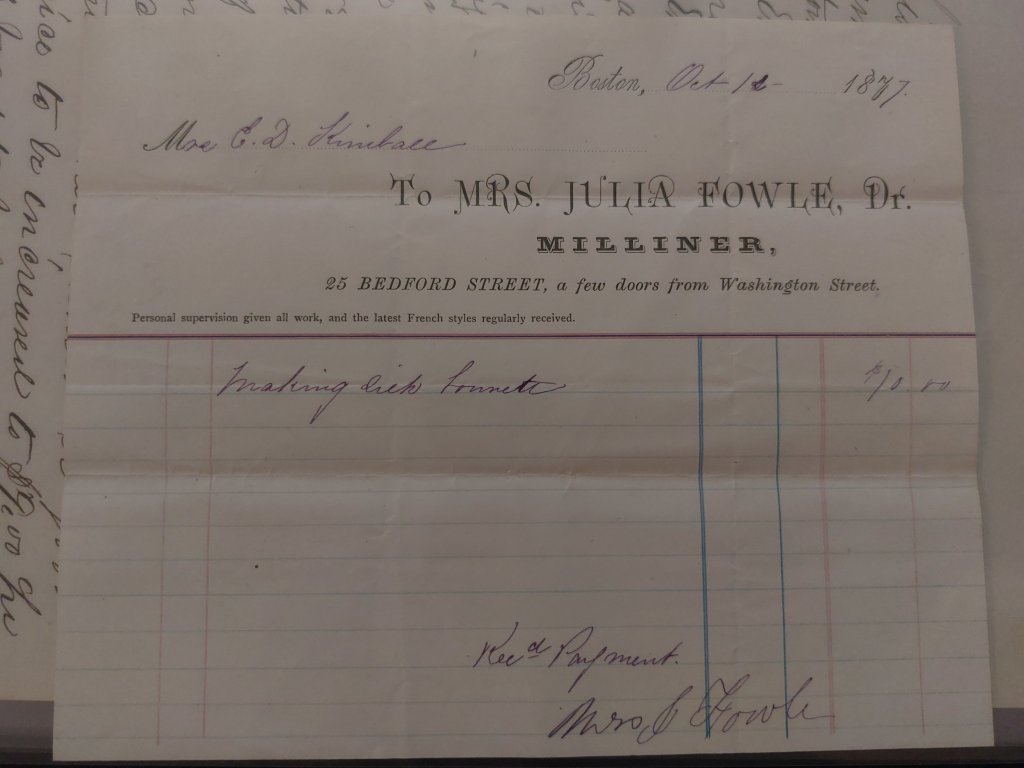 Boston, Oct 12 1877.
Mrs E. D. Kimball
To MRS. JULIA FOWLE, Dr.
MILLINER,
25 BEDFORD STREET, a few doors from Washington Street.
Personal supervision given all work, and the latest French styles regularly received.
Making silk bonnett $10.00
Recd Payment.
Mrs J Fowle
to be increased to